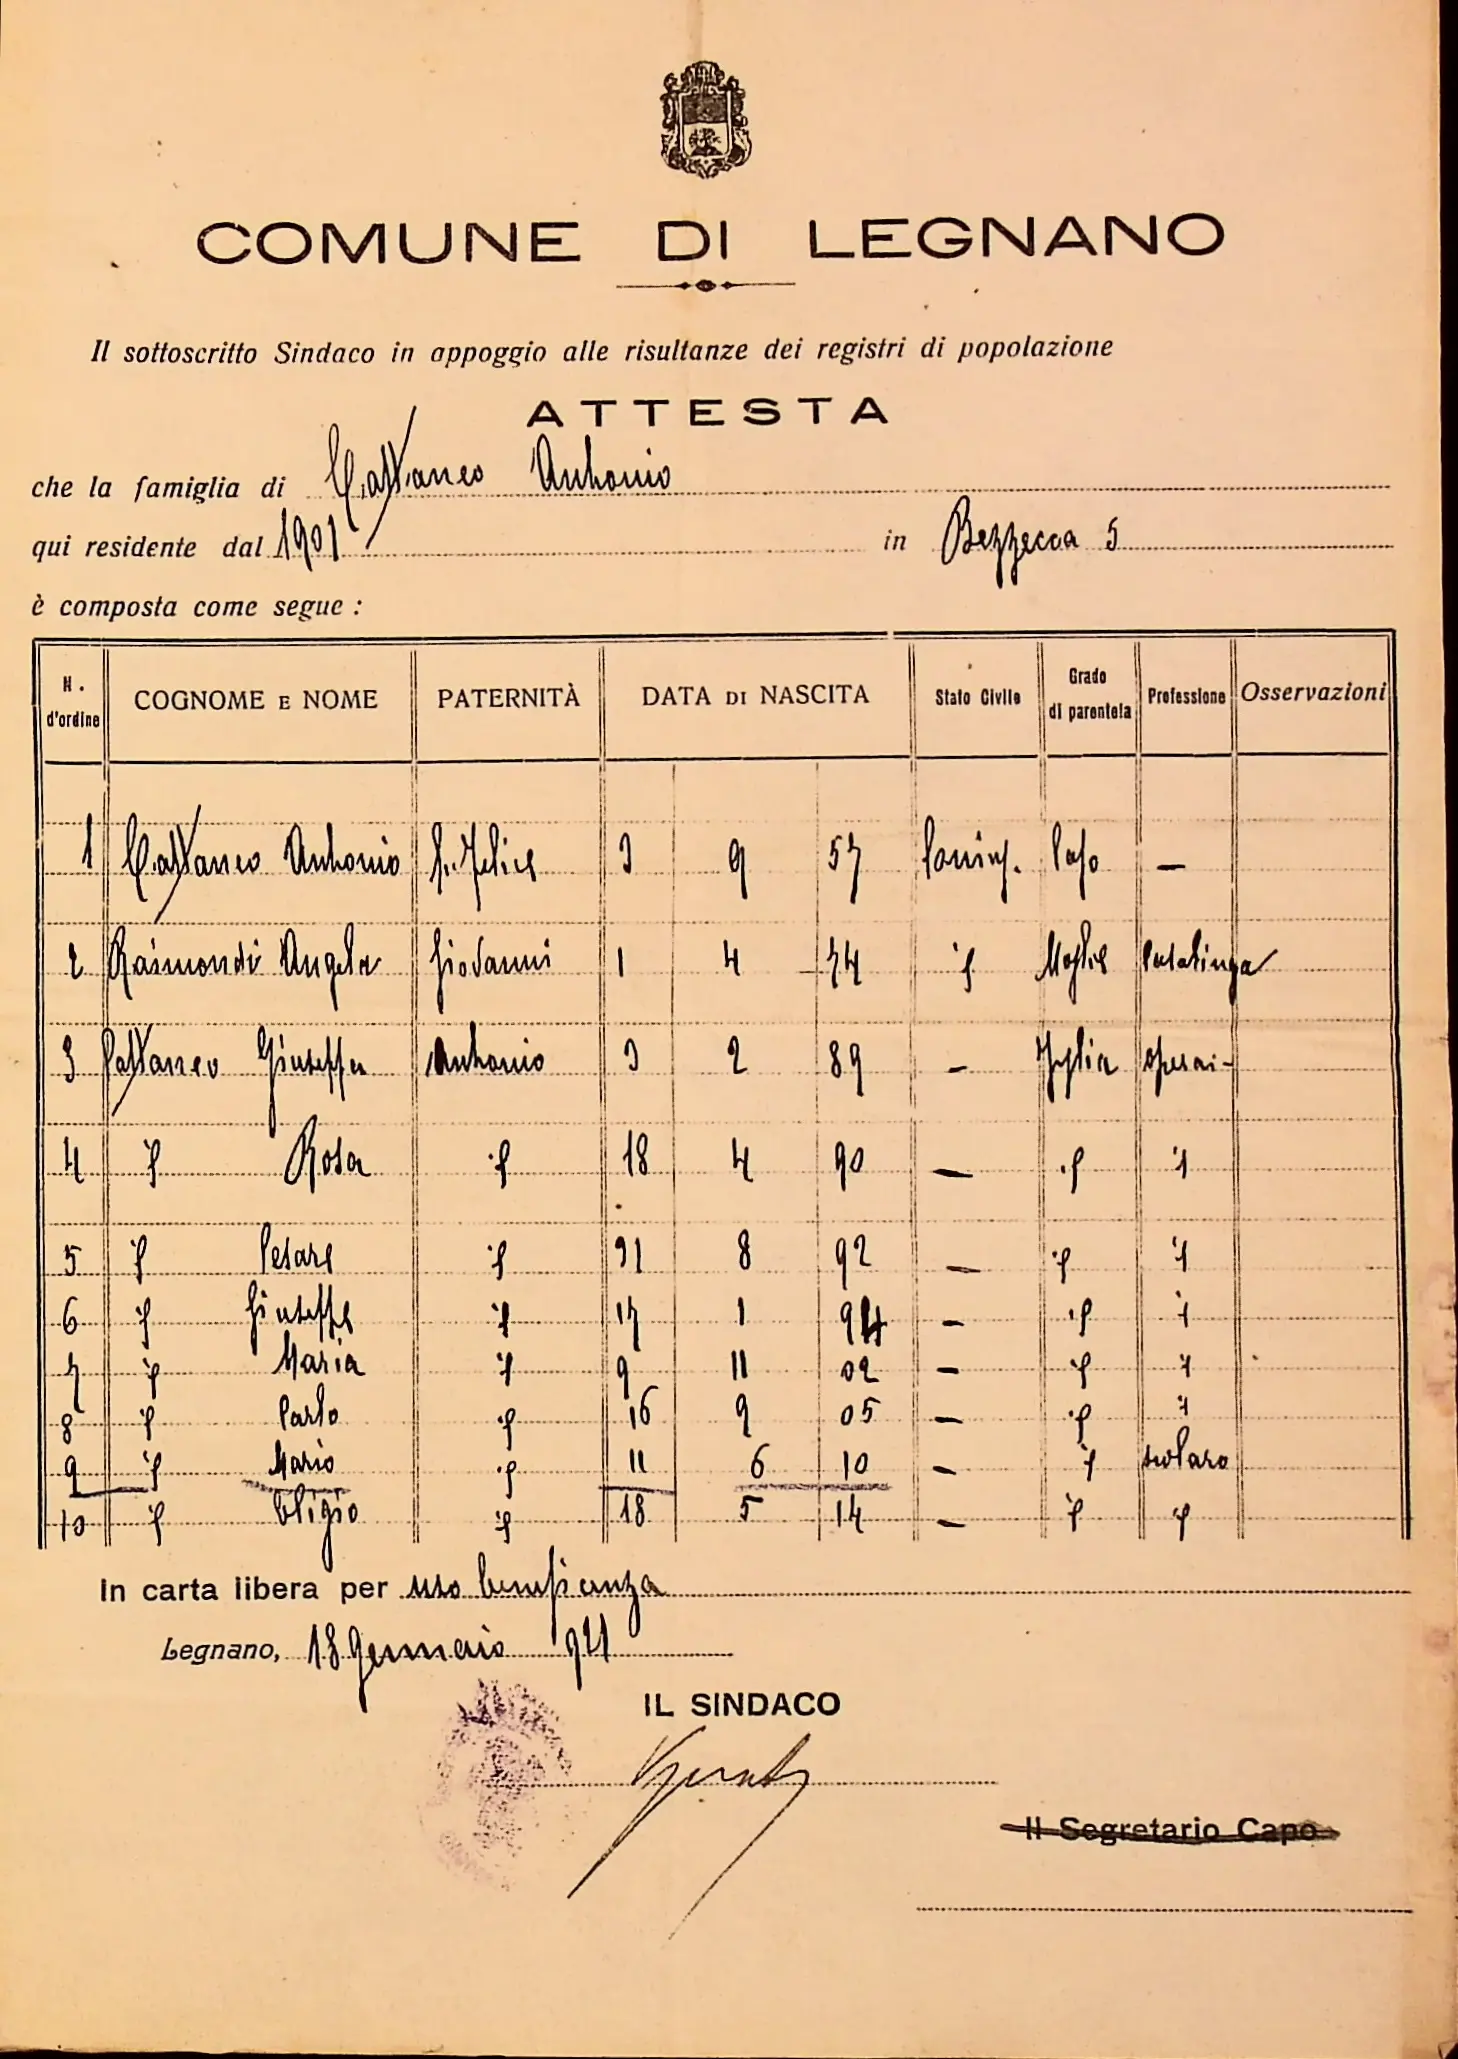 COMUNE DI LEGNANO
Il sottoscritto Sindaco in appoggio alle risultanze dei registri di popolazione
ATTESTA
che la famiglia di Cattaneo Antonio
qui residente dal 1901 in Bezzecca 5
è composta come segue :
N. d'ordine COGNOME E NOME PATERNITÀ DATA DI NASCITA Stato Civile Grado di parentela Professione Osservazioni
1 Cattaneo Antonio fu Felice 3 9 57 Coniug. Capo —
2 Raimondi Angela Giovanni 1 4 74 id Moglie Casalinga
3 Cattaneo Giuseppa Antonio 3 2 89 — Figlia operai-
4 id Rosa id 18 4 90 — id id
5 id Cesare id 31 8 92 — id id
6 id Giuseppe id 17 1 94 — id id
7 id Maria id 9 11 02 — id id
8 id Carlo id 16 9 05 — id id
9 id Mario id 11 6 10 — id scolaro
10 id Eligio id 18 5 14 — id id
In carta libera per uso beneficenza
Legnano, 18 Gennaio 921
IL SINDACO
Il Segretario Capo